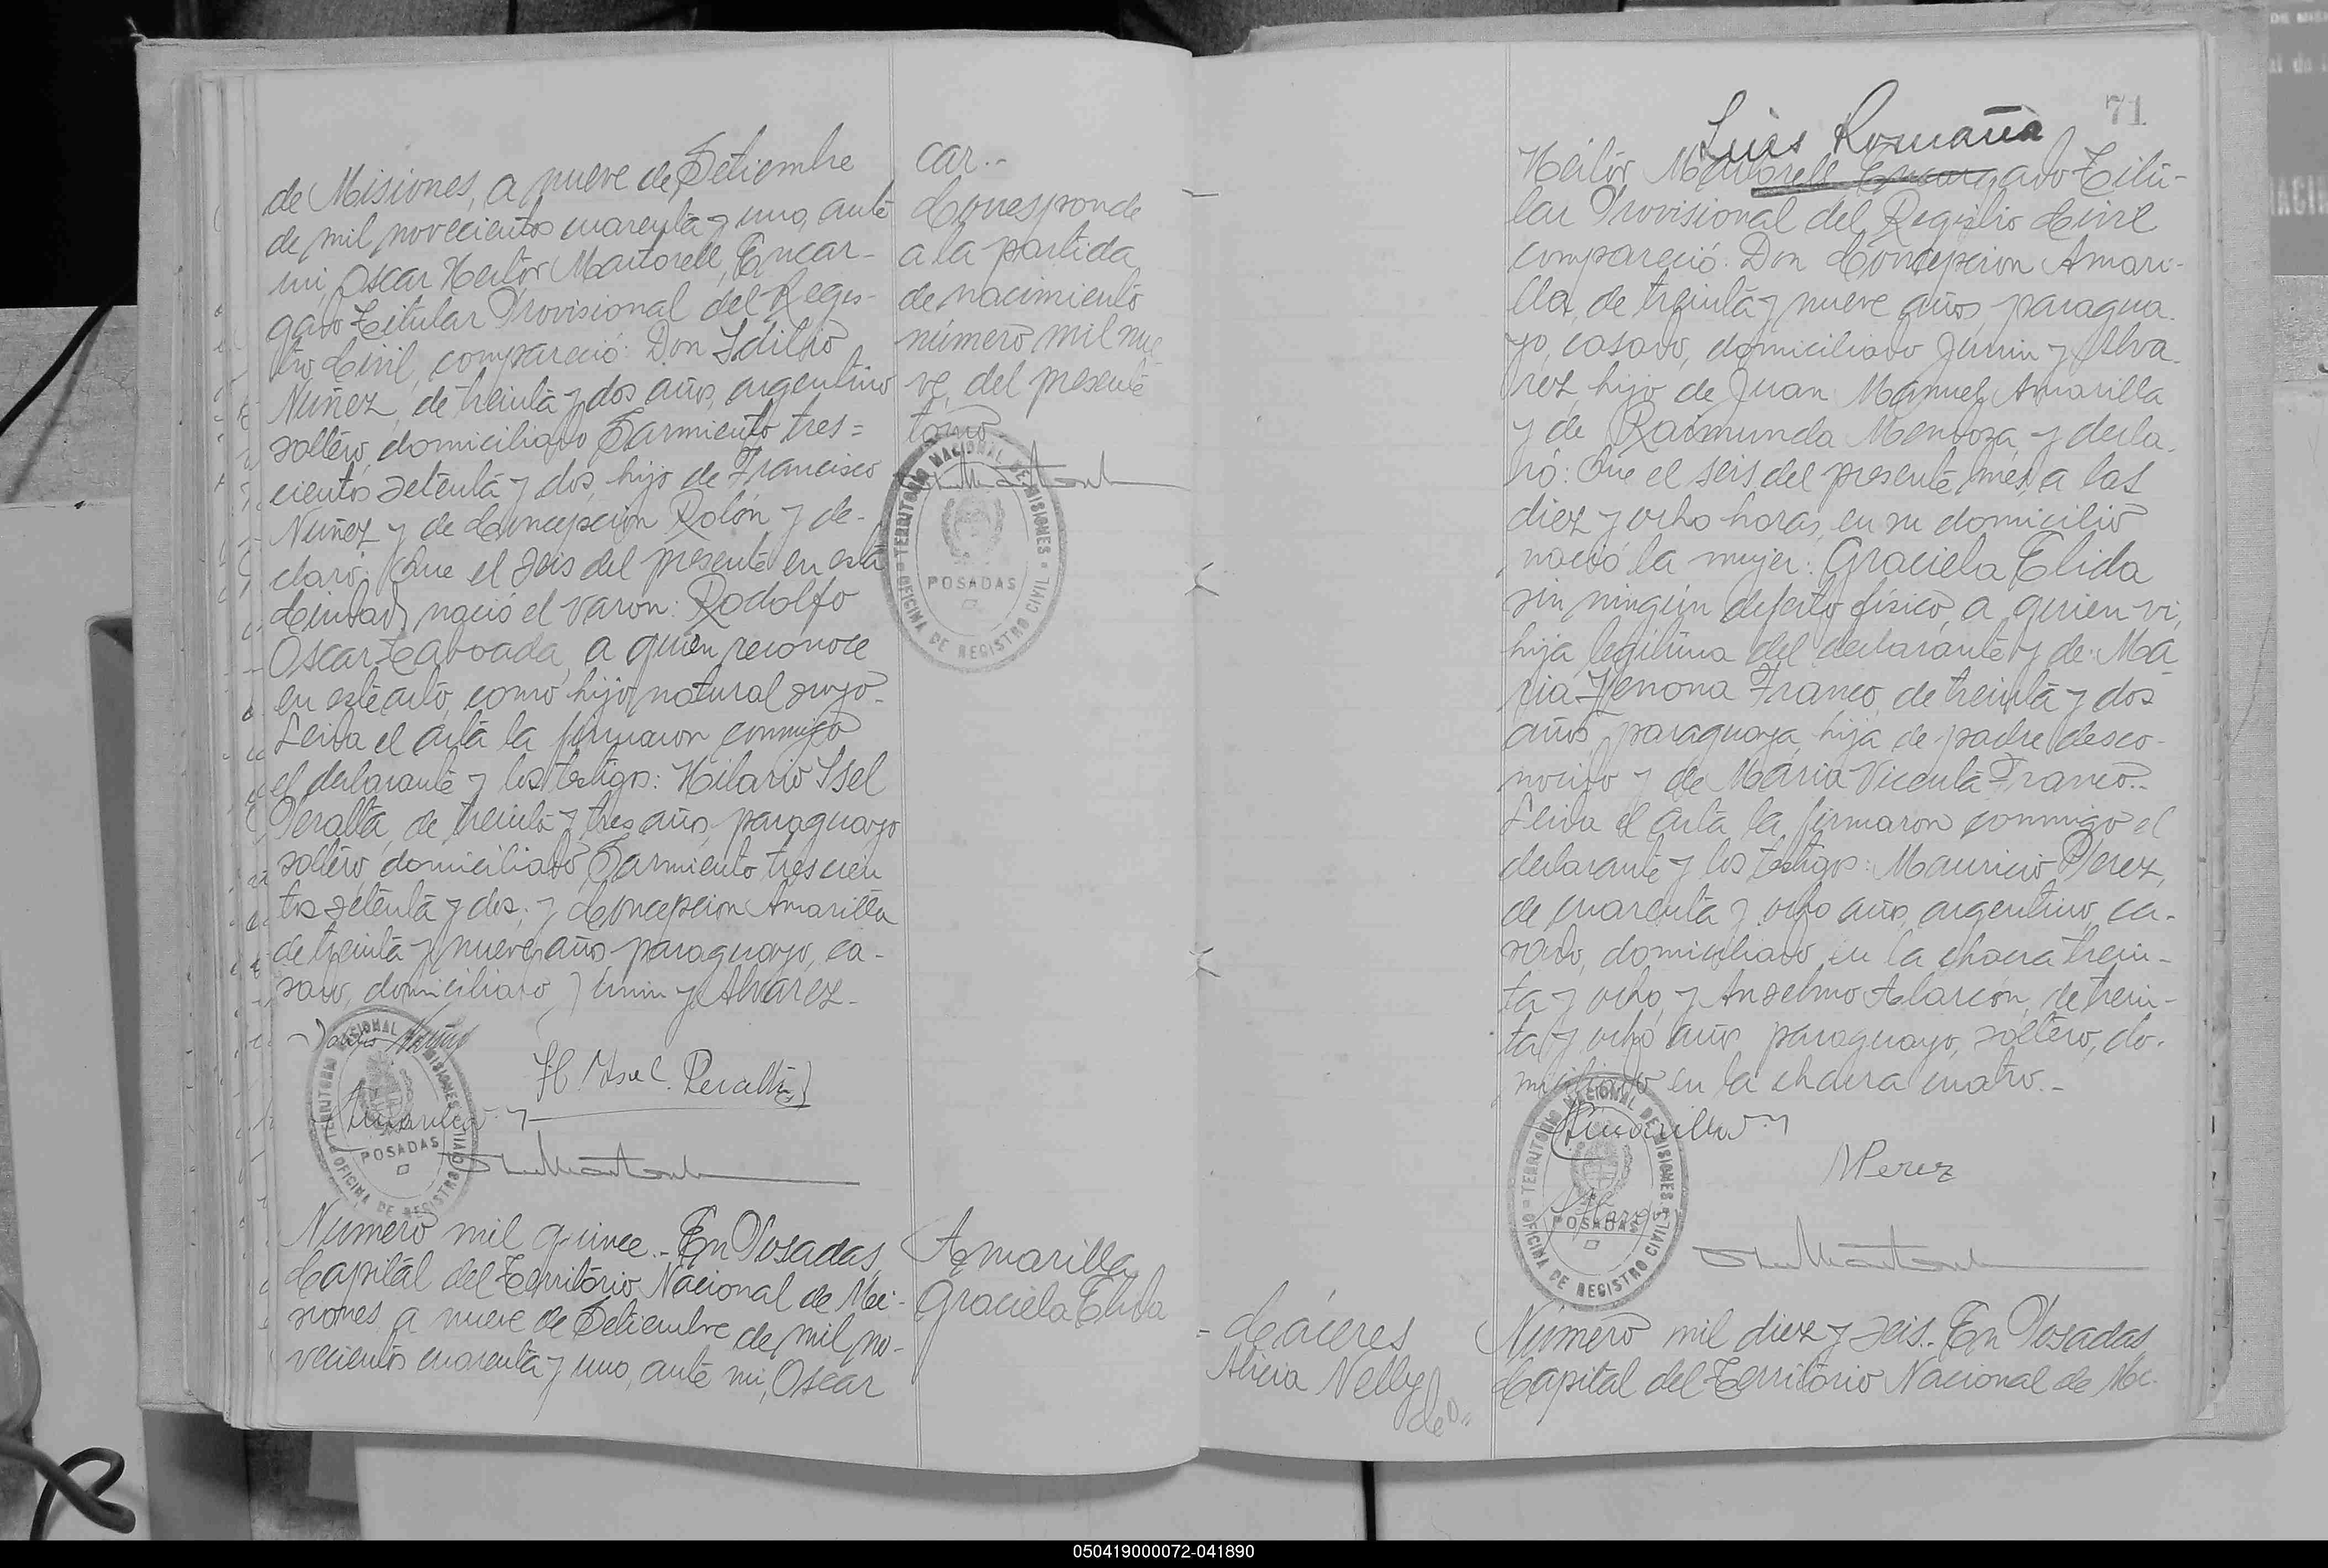 de Misiones, a nueve de Setiembre
de mil novecientos cuarenta y uno, ante
mi, Oscar Heitor Martorell, Encar-
gado Titular Provisional del Regis-
tro Civil, compareció: Don Idilio
Nuñez, de treinta y dos años, argentino
soltero, domiciliado Sarmiento tres=
cientos setenta y dos, hijo de Francisco
Nuñez y de Concepcion Rolón, y de-
claró: Que el seis del presente en esta
Ciudad, nació el varon: Rodolfo
Oscar Taboada, a quien reconoce
en este acto, como hijo natural suyo.-
Leida el acta la firmaron conmigo
el declarante y los testigos: Hilario Isel
Peralta, de treinta y tres años, paraguayo
soltero, domiciliado Sarmiento trescien
tos setenta y dos; y Concepcion Amarilla
de treinta y nueve años paraguayo, ca-
sado, domiciliado Junin y Alvarez.-
H. Isel. Peralta
TERRITORIO NACIONAL DE MISIONES
POSADAS
OFICINA DE REGISTRO CIVIL
Número mil quince.- En Posadas,
Capital del Territorio Nacional de Mi-
siones, a nueve de Setiembre de mil no-
vecientos cuarenta y uno, ante mi, Oscar
car.-
Corresponde
a la partida
de nacimiento
número mil nue
ve, del presente
tomo.
TERRITORIO NACIONAL DE MISIONES
POSADAS
OFICINA DE REGISTRO CIVIL
Amarilla
Graciela Elida
71
Luis Romaña
Heitor Martorell Encargado Titu-
lar Provisional del Registro Civil
compareció: Don Concepcion Amari-
lla, de treinta y nueve años, paragua-
yo, casado, domiciliado Junin y Alva-
rez, hijo de Juan Manuel Amarilla
y de Raimunda Mendoza, y decla-
ró: Que el seis del presente mes, a las
diez y ocho horas, en su domicilio
nació la mujer: Graciela Elida
sin ningún defecto físico, a quien vi,
hija legitima del declarante y de: Ma
ria Zenona Franco, de treinta y dos
años, paraguaya, hija de padre desco-
nocido y de Maria Vicenta Franco.-
Leida el acta la firmaron conmigo el
declarante y los testigos: Mauricio Perez,
de cuarenta y ocho años, argentino, ca-
sado, domiciliado en la chacra trein-
ta y ocho, y Anselmo Alarcón, de trein-
ta y ocho años paraguayo, soltero, do-
miciliado en la chacra cuatro.-
CAmarilla
MPerez
TERRITORIO NACIONAL DE MISIONES
POSADAS
OFICINA DE REGISTRO CIVIL
Cáceres
Alicia Nelly
de
Número mil diez y seis.- En Posadas
Capital del Territorio Nacional de Mi-
050419000072-041890